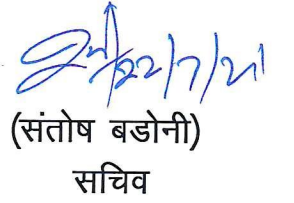 22/7/21
(संतोष बडोनी)
सचिव